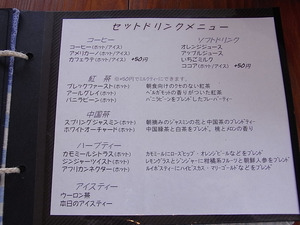 セットドリンクメニュー
コーヒー
コーヒー(ホット/アイス)
アメリカーノ(ホット/アイス)
カフェラテ(ホット/アイス) +50円
ソフトドリンク
オレンジジュース
アップルジュース
いちごミルク
ココア(ホット/アイス) +50円
紅 茶 ※+50円でミルクティにできます。
ブレックファースト(ホット) 朝食向けのクセのない紅茶
アールグレイ(ホット) ベルガモットの香りがついた紅茶
バニラビーン(ホット) バニラビーンをブレンドしたフレーバーティー
中国茶
スプリングジャスミン(ホット) 朝摘みのジャスミンの花と中国茶のブレンドティ
ホワイトオーチャード(ホット) 中国緑茶と白茶をブレンド。桃とメロンの香り
ハーブティー
カモミールシトラス(ホット) カモミールにローズヒップ・オレンジピールなどをブレンド
ジンジャーツイスト(ホット) レモングラスとジンジャーに柑橘系フルーツと朝鮮人参をブレンド
アフリカンネクター(ホット) ルイボスティーにハイビスカス・マリーゴールドなどをブレンド
アイスティー
ウーロン茶
本日のアイスティー